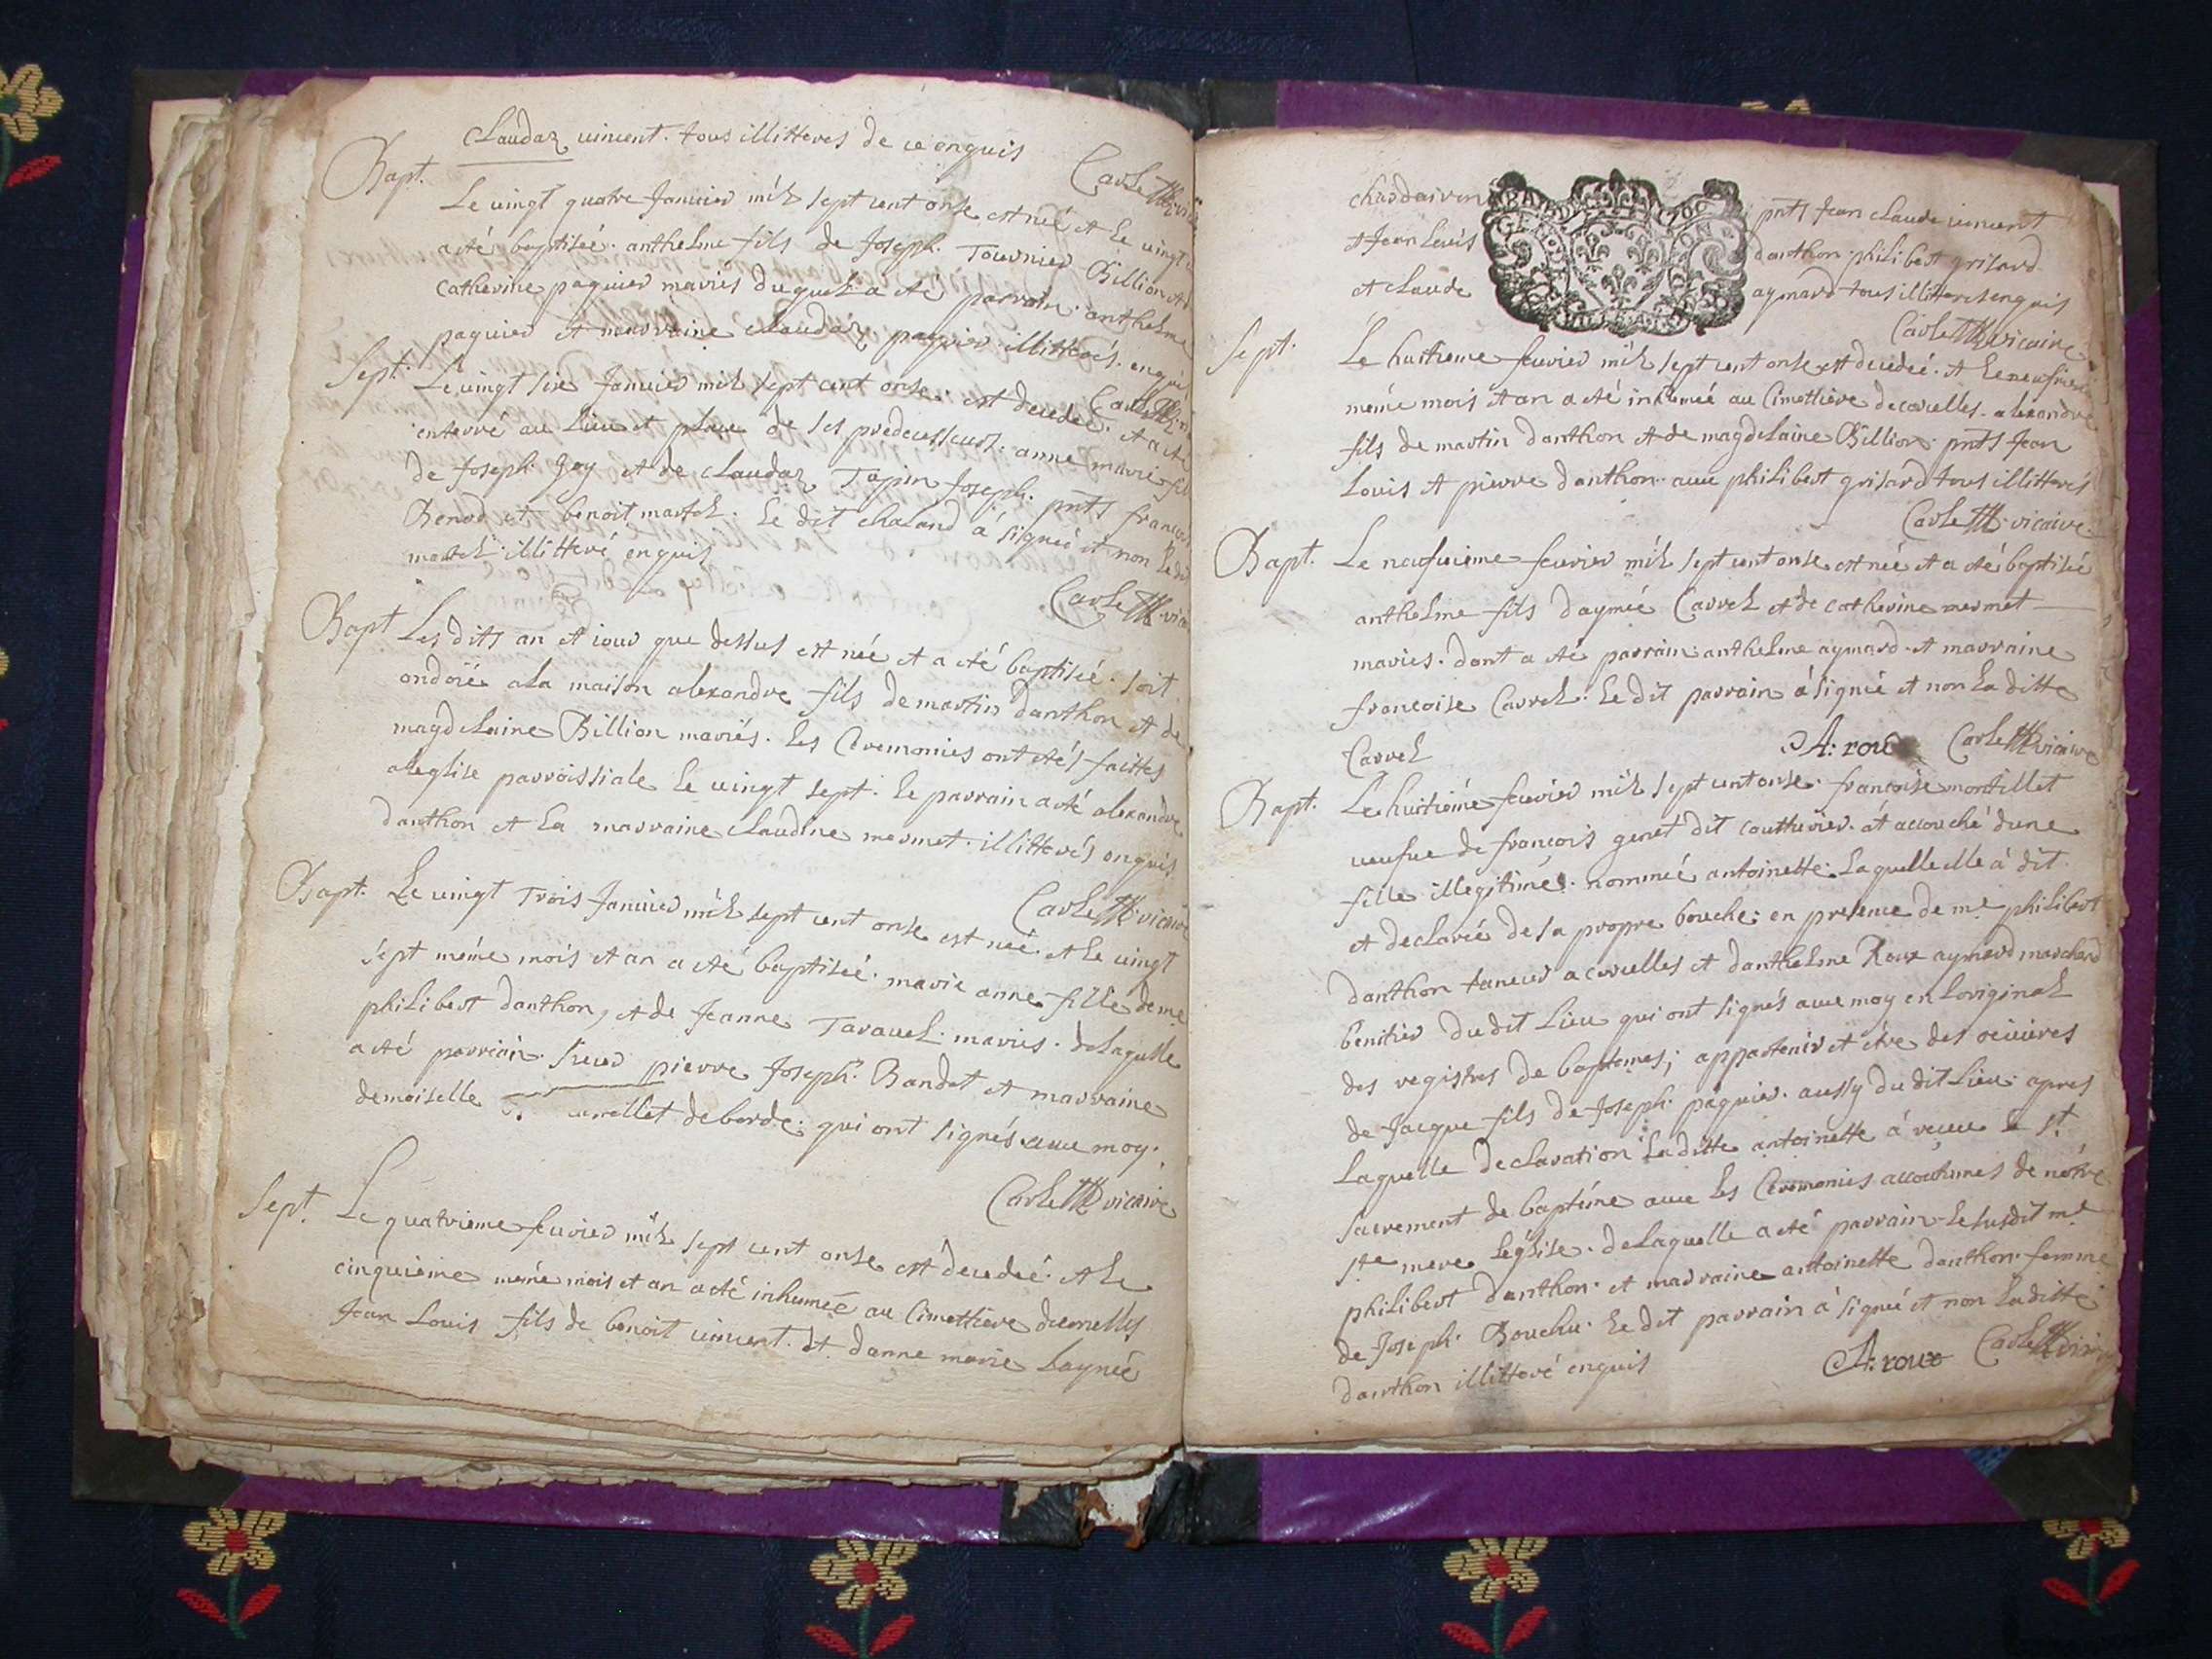 claudaz vincent. tous illitteres de ce enquis
Carle vicaire
Bapt. Le vingt quatre Janvier mil sept cent onse est neé et le vingt
a eté baptiseé. anthelme fils de Joseph. Tournier Billion et
catherine paquier mariés duquel a eté parrain. anthelme
paquier et marraine claudaz paquier illitterés. enquis
Carle
Sept. Le vingt sixe Janvier mil sept cent onse. est decedeé. et a eté
enterré au lieu et place de ses predecesseurs. anne marie fil
de Joseph. Goy et de claudaz Tapin Joseph. pnts françois
Renod et benoit martel. le dit chaland á signeé et non le dit
martel illitteré enquis
Carle vicaire
Bapt Les dits an et iour que dessus est née et a eté baptiseé. soit
ondoié a la maison alexandre fils de martin danthon et de
magdelaine Billion mariés. les Ceremonies ont etés faittes
a leglise parroissiale le vingt sept. le parrain a eté alexandre
danthon et la marraine claudine mermet. illitterés enquis
Carle vicaire
Bapt. Le vingt Trois Janvier mil sept cent onse est neé. et le vingt
sept méme mois et an a eté baptiseé. marie anne fille de me
philibert danthon, et de Jeanne Taravel. mariés. de laquelle
a eté parrain. sieur pierre Joseph. Bandet et marraine
demoiselle deborde. qui ont signés avec moy.
Carle vicaire
Sept. Le quatrieme fevrier mil sept cent onse est decedeé. et le
cinquieme méme mois et an a eté inhumeé au Cimettiere
Jean Louis fils de benoit vincent. et danne marie bayneé
pnts Jean claude vincent
et Jean louis danthon philibert grisard
et claude aymard tous illitteres enquis
Carle vicaire
Sept. Le huitieme fevrier mil sept cent onse est decedeé. et le neufvieme
méme mois et an a eté inhumeé au Cimettiere de corcelles. alexandre
fils de martin danthon et de magdelaine Billion. pnts Jean
Louis et pierre danthon. avec philibert grisard tous illitterés
Carle vicaire.
Bapt. Le neufvieme fevrier mil sept cent onse est neé et a eté baptiseé
anthelme fils daymeé Carrel et de catherine mermet
mariés. dont a eté parrain anthelme aymard. et marraine
francoise Carrel. le dit parrain á signeé et non la ditte
Carrel A: roux Carle vicaire
Bapt. Le huitiéme fevrier mil sept cent onse. francoise montillet
veufve de françois genet dit couthurier. at accouché dune
fille illegitime. nommeé antoinette. laquelle elle á dit.
et declareé de sa propre bouche. en presence de me philibert
danthon taneur a corcelles et danthelme Roux aymard marchand
benitier du dit lieu qui ont signés avec moy en loriginal
des registres de baptemes; appartenir et étre des oeuvres
de Jacque fils de Joseph. paquier. aussy du dit lieu. apres
laquelle declaration la ditte antoinette á reçeu le st
sacrement de baptéme avec les Ceremonies accoutumes de nótre
ste mere leglise. de laquelle a eté parrain le susdit me
philibert danthon. et marraine antoinette danthon. femme
de Joseph. Bouchu. le dit parrain á signeé et non la ditte
danthon illitteré enquis A: roux Carle vicaire